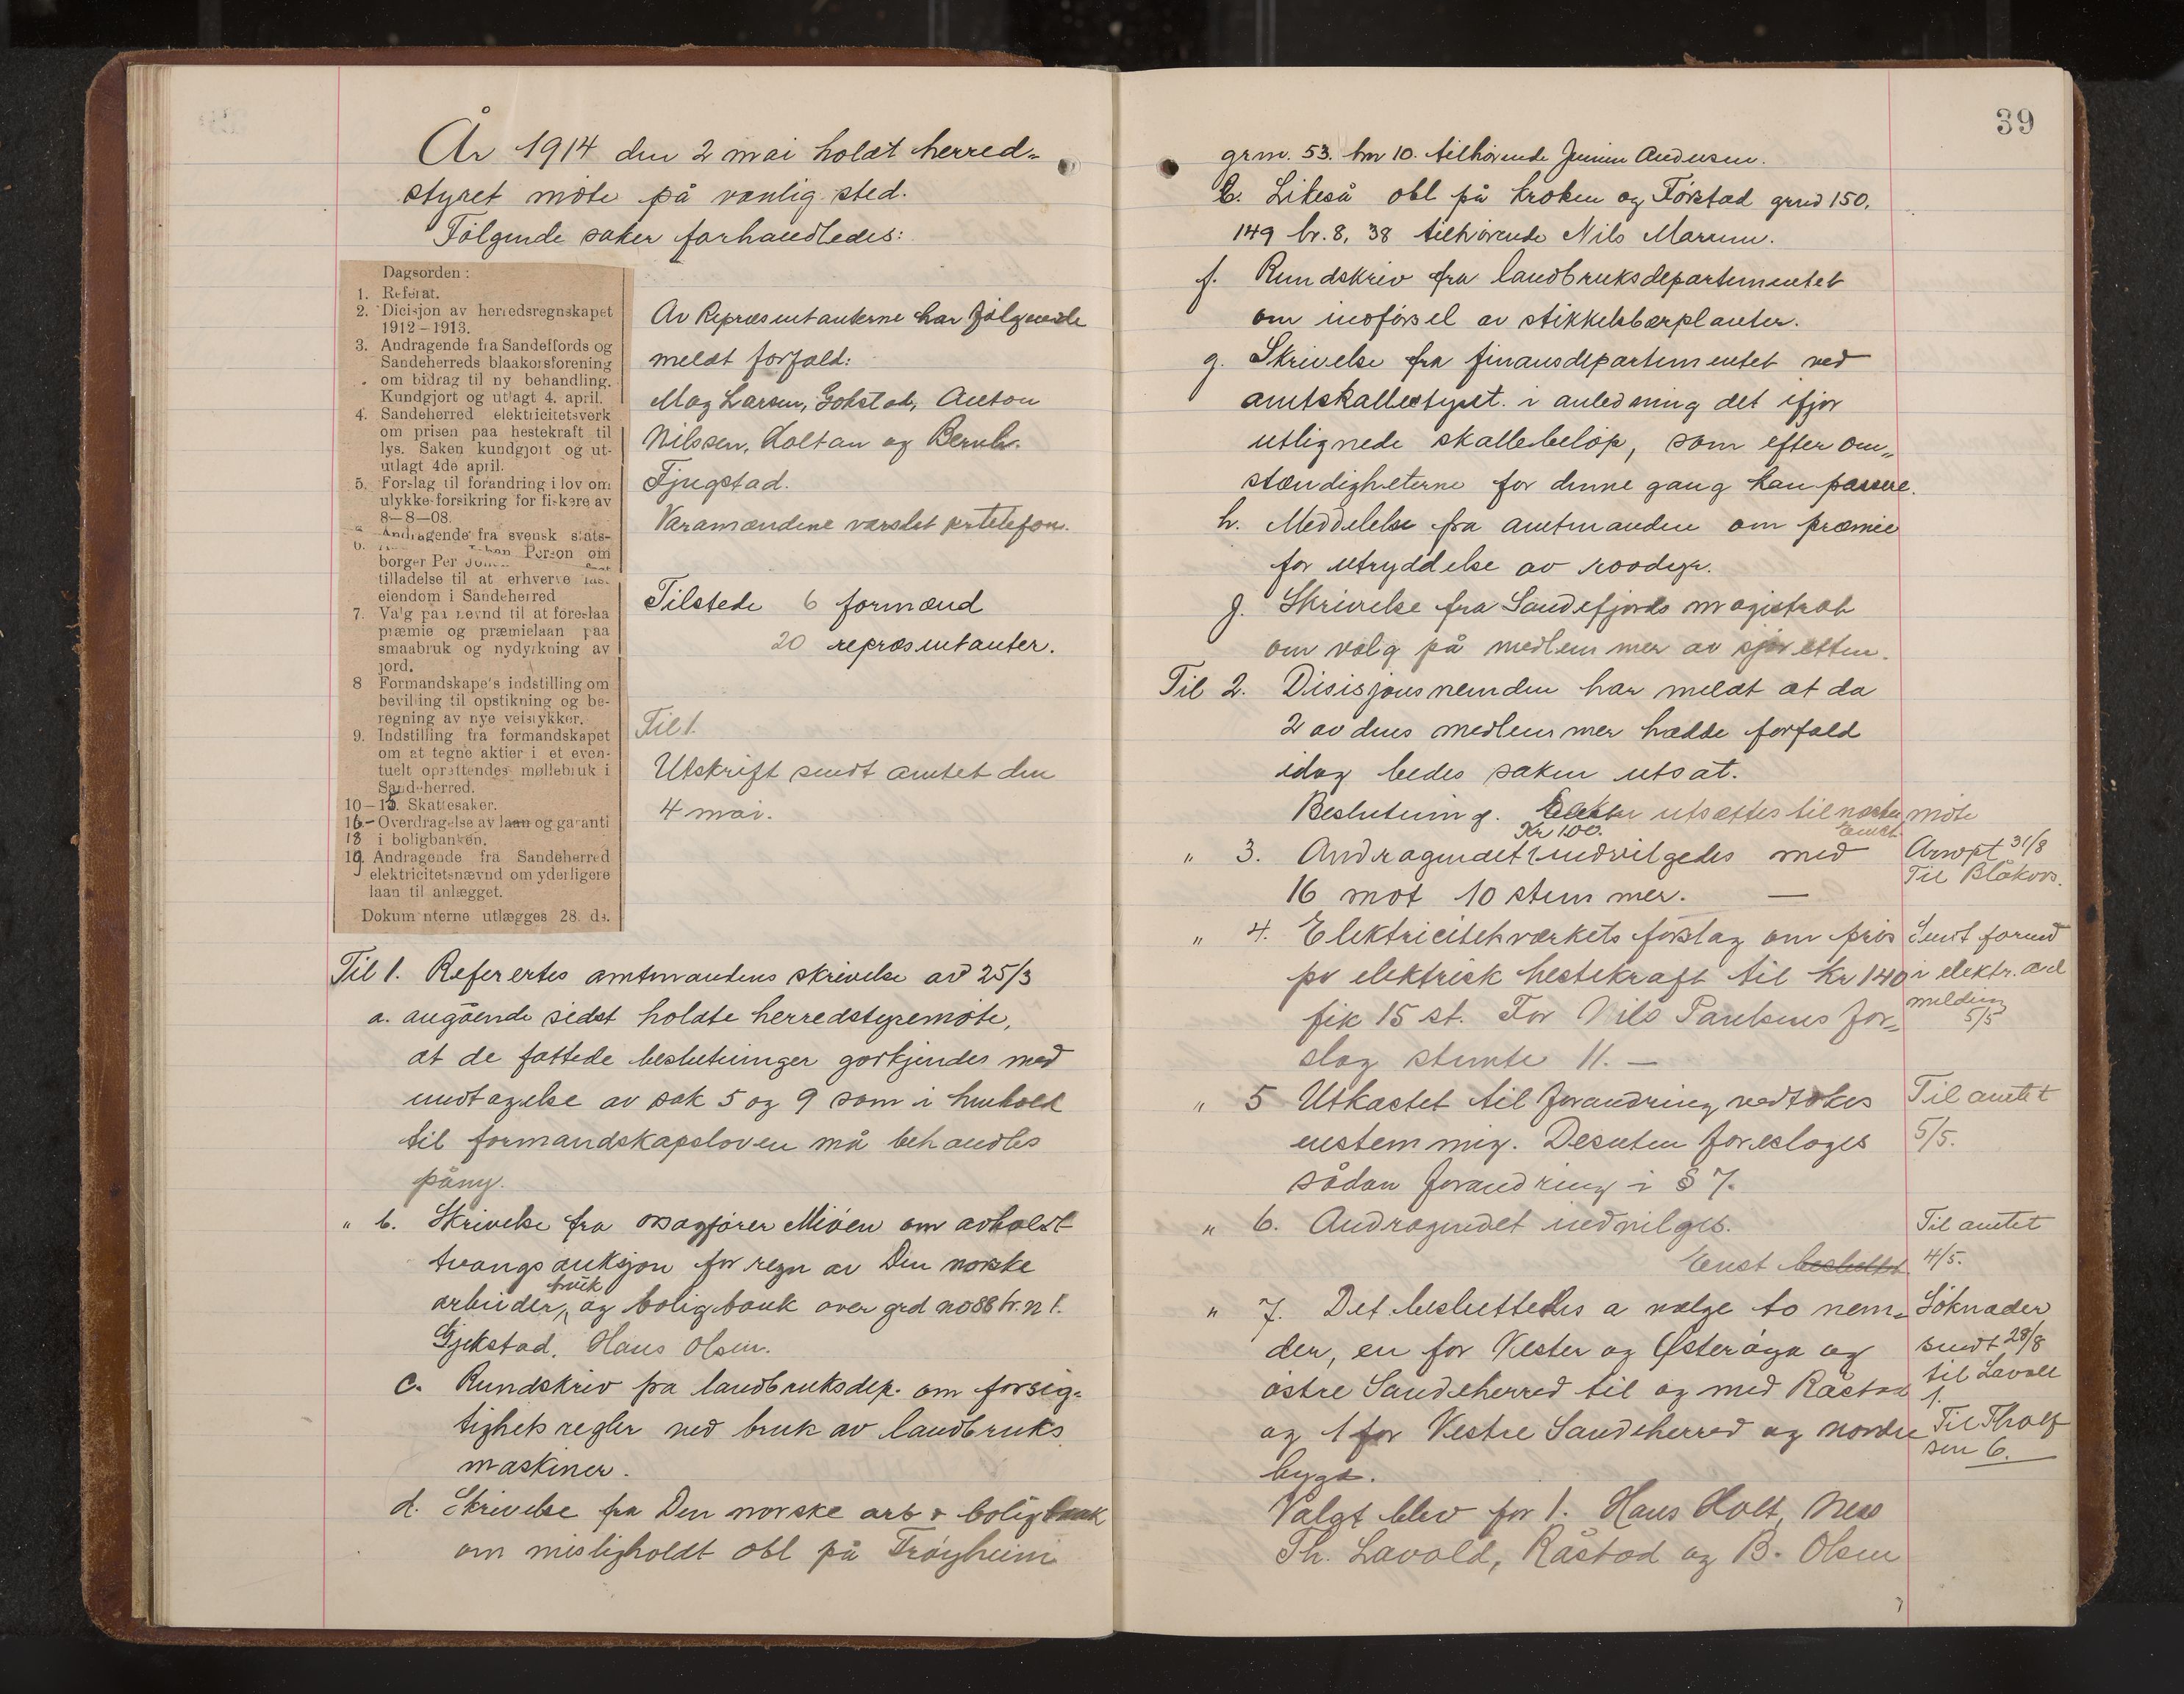 År 1914 den 2 mai holdt herred-
styret møte på vanlig sted.
Følgende saker forhandledes:
Dagsorden:
1. Referat.
2. Dicisjon av herredsregnskapet
1912–1913.
3. Andragende fra Sandeffords og
Sandeherreds blaakorsforening
om bidrag til ny behandling.
Kundgjort og utlagt 4. april.
4. Sandeherred elektricitetsverk
om prisen paa hestekraft til
lys. Saken kundgjort og ut-
utlagt 4de april.
5. Forslag til forandring i lov om
ulykke-forsikring for fiskere av
8–8–08.
6. Andragende fra svensk stats-
borger Per Johan Person om
tilladelse til at erhverve fast
eiendom i Sandeherred
7. Valg paa nevnd til at foreslaa
præmie og præmielaan paa
smaabruk og nydyrkning av
jord.
8 Formandskapets indstilling om
bevilling til opstikning og be-
regning av nye veistykker.
9. Indstilling fra formandskapet
om at tegne aktier i et even-
tuelt oprettendes møllebruk i
Sandeherred.
10–15. Skattesaker.
16.– Overdragelse av laan og garanti
18 i boligbanken.
19. Andragende fra Sandeherred
elektricitetsnævnd om yderligere
laan til anlægget.
Dokumenterne utlægges 28. ds.
Av Repræsentanterne har følgende
meldt forfald:
Mag Larsen, Gokstad, Anton
Nilssen, Holtan og Bernh.
Fjugstad.
Varamændene varslet pr telefon.
Tilstede 6 formænd
20 repræsentanter.
Til 1.
Utskrift sendt amtet den
4 mai.
Til 1. Referertes amtmandens skrivelse av 25/3
a. angående sidst holdte herredstyremøte,
at de fattede beslutninger godkjendes med
undtagelse av sak 5 og 9 som i henhold
til formandskapsloven må behandles
påny.
" b. Skrivelse fra osagfører Miøen om avholdt
tvangsauksjon for regn av Den norske
arbeider, bruk og boligbank over grd no 88 br. n 1.
Gjekstad. Hans Olsen.
c. Rundskriv fra landbruksdep. om forsig-
tighetsregler ved bruk av landbruks
maskiner.
d. Skrivelse fra Den norske arb & boligbank
om misligholdt obl på Trøyheim
39
grm. 53. bn 10. tilhørende Andersen.
e. Likeså obl på Kroken og grnd 150.
149 br. 8, 38 tilhørende Nils
f. Rundskriv fra landbruksdepartementet
om indførsel av stikkelsbærplanter.
g. Skrivelse fra finansdepartementet ved
amtskattestyret. i anledning det ifjor
utlignede skattebeløp, som efter om-
stændigheterne for denne gang kan passere.
h. Meddelelse fra amtmanden om præmie
for utryddelse av rovdyr.
j. Skrivelse fra Sandefjords magistrat
om valg på medlemmer av sjøretten.
Til 2. Disisjonsnemden har meldt at da
2 av dens medlemmer hadde forfald
idag bedes saken utsat.
Beslutning. utsættes til næste møte
Kr 100. Enst.
" 3. Andragendet indvilgedes med
16 mot 10 stemmer. —
Anvpt 31/8
Til Blåkors.
" 4. Elektricitetsværkets forslag om pris
pr elektrisk hestekraft til Kr 140
fik 15 st. For Nils Paulsens for-
slag stemte 11. —
Sendt formd
i elektr. avd
melding
5/5
" 5 Utkastet til forandring vedtokes
enstemmig. Desuten foresloges
sådan forandring i § 7.
Til amtet
5/5.
" 6. Andragendet indvilges.
Enst besluttet.
Til amtet
4/5.
" 7. Det besluttedes a vælge to nem-
der, en for Vester og Østerøya og
østre Sandeherred til og med Råstad
og 1 for Vestre Sandeherred og nordre
bygd.
Søknader
sendt 28/8
til Lavold
1.
Til Tholf
sen 6.
Valgt blev for 1. Hans Holt, Nes
Th. Lavold, Råstad og B. Olsen